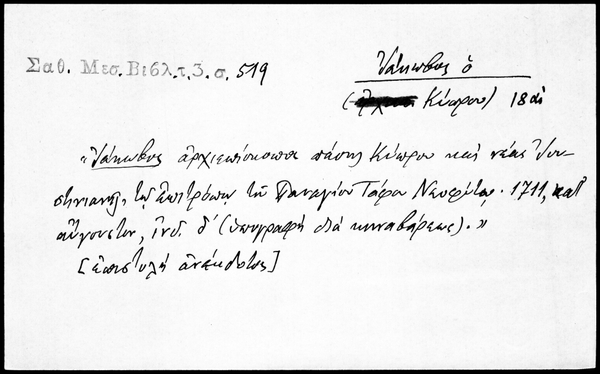 Σαθ. Μεσ. Βιβλ. τ. 3. σ. 519
Ἰάκωβος ὁ
( Κύπρου) 18 αἰ
«Ἰάκωβος ἀρχιεπίσκοπος πάσης Κύπρου καὶ νέας Ἰου-
στινιανῆς, τῷ Ἐπιτρόπῳ τοῦ Παναγίου Τάφου Νεοφύτῳ. 1711, κατ'
αὔγουστον, ἰνδ. δ' (ὑπογραφὴ διὰ κινναβάρεως).»
[ἐπιστολὴ ἀνέκδοτος]